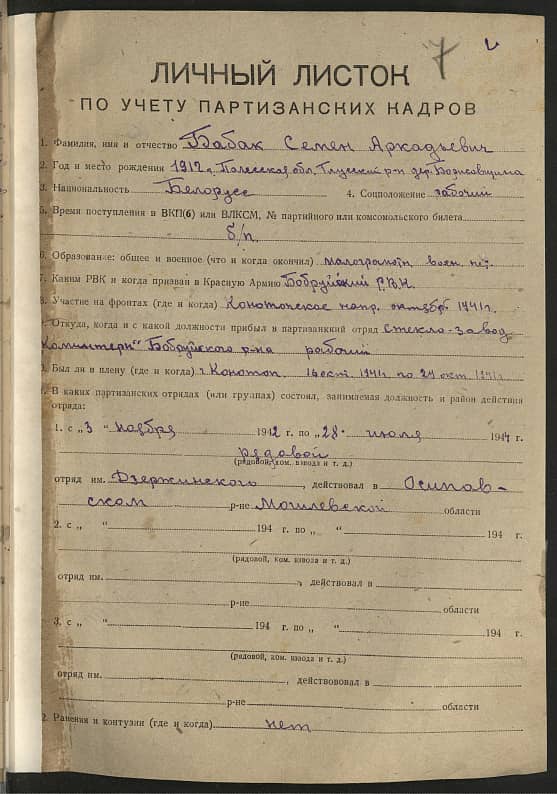 7
ЛИЧНЫЙ ЛИСТОК
ПО УЧЕТУ ПАРТИЗАНСКИХ КАДРОВ
1. Фамилия, имя и отчество Бабак Семен Аркадьевич
2. Год и место рождения 1912 г. Полесская обл. Глусский р-н дер. Борисовщина
3. Национальность Белорусс 4. Соцположение рабочий
5. Время поступления в ВКП(б) или ВЛКСМ, № партийного или комсомольского билета
б/п.
6. Образование: общее и военное (что и когда окончил) малограмотн, воен. нет.
7. Каким РВК и когда призван в Красную Армию Бобруйский РВК.
8. Участие на фронтах (где и когда) Конотопское напр. октябрь 1941 г.
9. Откуда, когда и с какой должности прибыл в партизанский отряд стекло-завод
Коминтерн" Бобруйского р-на рабочий
Был ли в плену (где и когда) г. Конотоп. 1941 г. по окт 1941 г.
В каких партизанских отрядах (или группах) состоял, занимаемая должность и район действия
отряда:
1. с „3 " Ноября 1942 г. по „28 " июля 1944 г.
рядовой
(рядовой, ком. взвода и т. д.)
отряд им. Дзержинского, действовал в Осипов-
ском р-не Могилевской области
2. с „ " 194 г. по „ " 194 г.
(рядовой, ком. взвода и т. д.)
отряд им. , действовал в
р-не области
3. с „ " 194 г. по „ " 194 г.
(рядовой, ком. взвода и т. д.)
отряд им. , действововал в
р-не области
2. Ранения и контузии (где и когда) нет